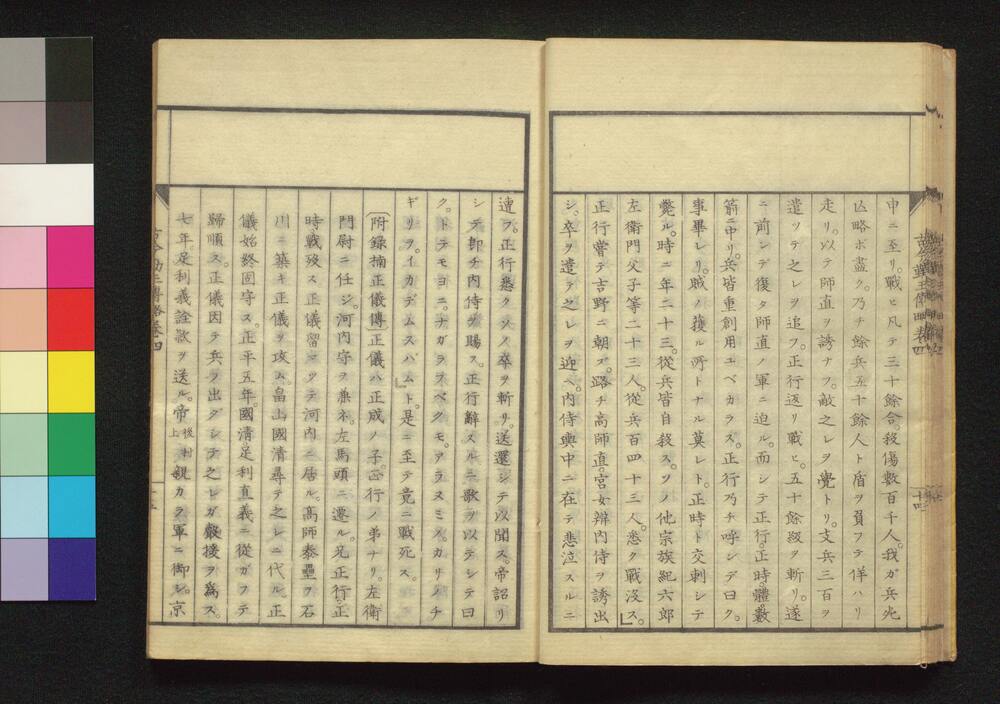 申ニ至リ。戰ヒ凡テ三十餘合。殺傷數百千人。我ガ兵死
亾略ボ盡ク。乃チ餘兵五十餘人ト盾ヲ負フテ佯ハリ
走リ。以テ師直ヲ誘ナフ。敵之レヲ覺トリ。支兵三百ヲ
遣ツテ之レヲ追フ。正行返リ戰ヒ。五十餘級ヲ斬リ。遂
ニ前ンデ復タ師直ノ軍ニ迫ル。而シテ正行。正時。體數
箭ニ中リ。兵皆重創用ユベカラス。正行乃チ呼ンデ曰ク。
事畢レリ。賊ノ獲ル所トナル莫レト。正時ト交刺シテ
斃ル。時ニ年二十三。從兵皆自殺ス。ソノ他宗族紀六郎
左衛門父子等二十三人。從兵百四十三人。悉ク戰没ス。」
正行嘗テ吉野ニ朝ズ。路チ高師直。宮女辨内侍ヲ誘出
シ。卒ヲ遣テ之レヲ迎ヘ。内侍輿中ニ在テ悲泣スルニ
遭フ。正行悉クソノ卒ヲ斬リ。送還シテ以聞ス。帝詔リ
シテ即チ内侍ヲ賜ス。正行辭スルニ歌ヲ以テシテ曰
ク。トテモヨニ。ナガラフベクモ。アラヌミノ。カリノチ
ギリヲ。イカデムスバム」ト。是ニ至テ竟ニ戰死ス。
(附録楠正儀傳)正儀ハ正成ノ子。正行ノ弟ナリ。左衛
門尉ニ任シ。河内守ヲ兼ネ。左馬頭ニ遷ル。兄正行。正
時戰殁ス正儀留マツテ河内ニ居ル。髙師泰壘ヲ石
川ニ築キ正儀ヲ攻ム。畠山國清尋テ之レニ代ル。正
儀始終固守ス。正平五年。國清足利直義ニ從ガフテ
歸順ス。正儀因テ兵ヲ出ダシテ之レガ聲援ヲ爲ス。
七年。足利義詮欵ヲ送ル。帝後村上親カラ軍ニ御シ。京